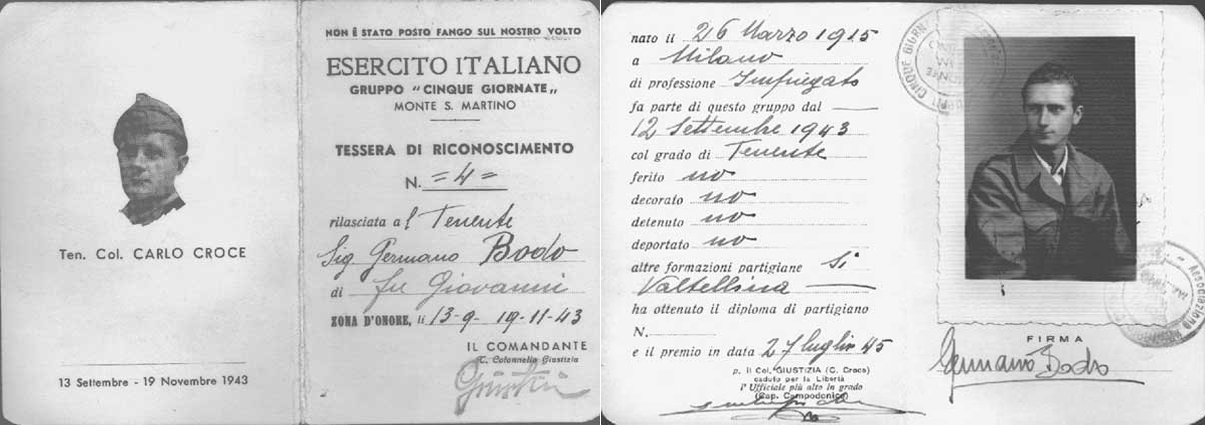 Ten. Col. CARLO CROCE
13 Settembre - 19 Novembre 1943
NON È STATO POSTO FANGO SUL NOSTRO VOLTO
ESERCITO ITALIANO
GRUPPO "CINQUE GIORNATE"
MONTE S. MARTINO
TESSERA DI RICONOSCIMENTO
N. =4=
rilasciata al Tenente
Sig. Germano Bodo
di fu Giovanni
ZONA D'ONORE, li 13-9- 19-11-43
IL COMANDANTE
T. Colonnello Giustizia
Giustizia
nato il 26 Marzo 1915
a Milano
di professione Impiegato
fa parte di questo gruppo dal
12 Settembre 1943
col grado di Tenente
ferito no
decorato no
detenuto no
deportato no
altre formazioni partigiane Si
Valtellina
ha ottenuto il diploma di partigiano
N.
e il premio in data 27 luglio 45
p. il Col. GIUSTIZIA (C. Croce)
caduto per la Libertà
l'Ufficiale più alto in grado
(Cap. Campodonico)
CINQUE GIORN
Associazione
FIRMA
Germano Bodo